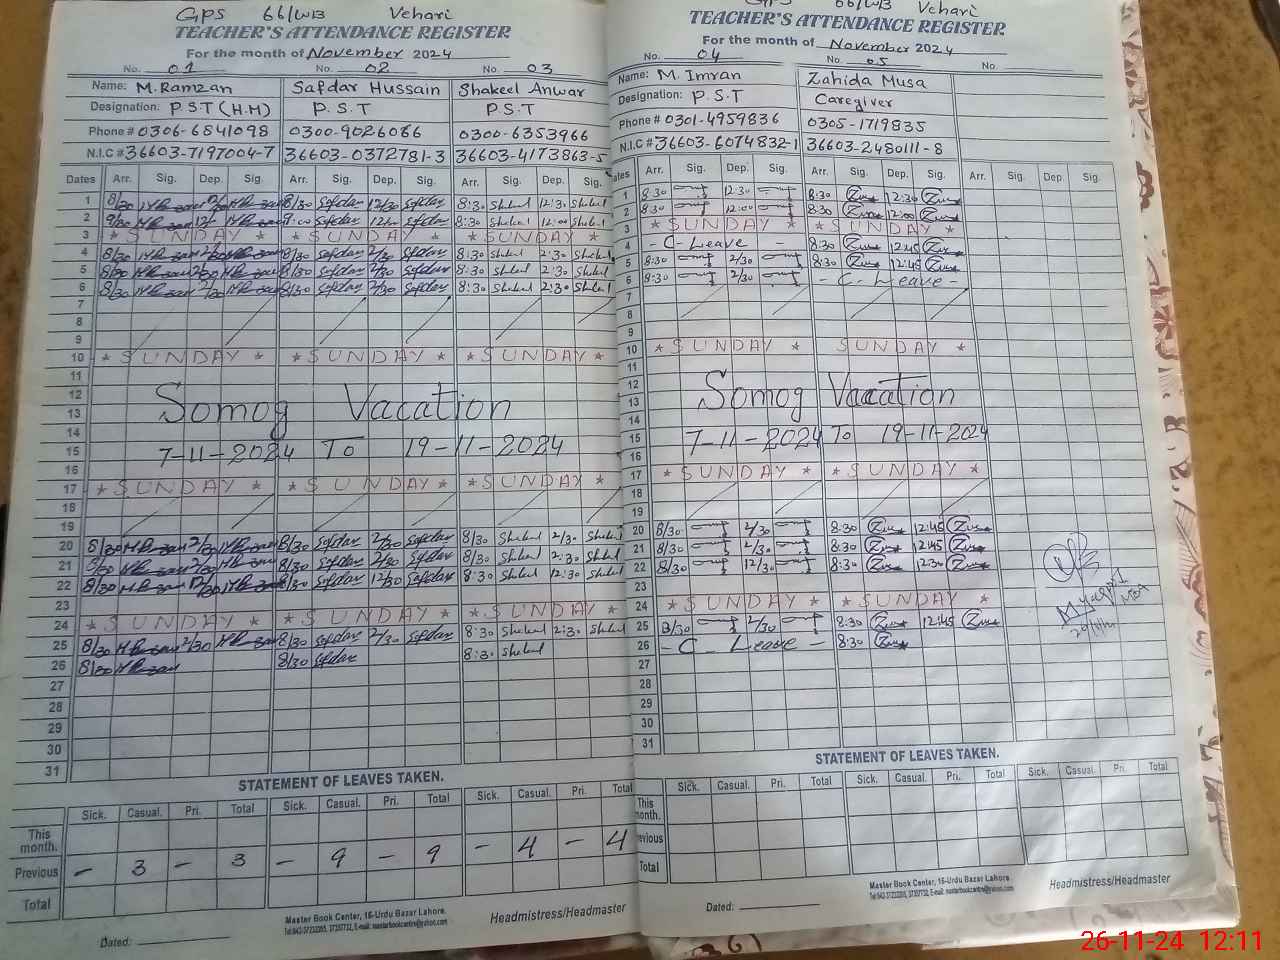 GPS 66/WB Vehari
TEACHER'S ATTENDANCE REGISTER
For the month of November 2024
No. 01 No. 02 No. 03
Name: M. Ramzan Safdar Hussain Shakeel Anwar
Designation: P.S.T (H.M) P.S.T P.S.T
Phone # 0306-6841098 0300-9026086 0300-6353966
N.I.C # 36603-7197004-7 36603-0372781-3 36603-4173863-5
Dates Arr. Sig. Dep. Sig. Arr. Sig. Dep. Sig. Arr. Sig. Dep. Sig.
1 8/30 2/30 8/30 Safdar 12/30 Safdar 8:30 Shakeel 12:30 Shakeel
2 9/30 12/ 9:00 Safdar Safdar 8:30 Shakeel 12:00 Shakeel
3 * SUNDAY * * SUNDAY * * SUNDAY *
4 8/30 2/30 8/30 Safdar 2/30 Safdar 8:30 Shakeel 2:30 Shakeel
5 8/30 2/30 8/30 Safdar 2/30 Safdar 8:30 Shakeel 2:30 Shakeel
6 8/30 2/30 8/30 Safdar 2/30 Safdar 8:30 Shakeel 2:30 Shakeel
7
8
9
10 * SUNDAY * * SUNDAY * * SUNDAY *
11
12
Somog Vacation
13
14
15 7-11-2024 To 19-11-2024
16
17 * SUNDAY * * SUNDAY * * SUNDAY *
18
19
20 8/30 2/30 8/30 Safdar 2/30 Safdar 8/30 Shakeel 2/30 Shakeel
21 8/30 2/30 8/30 Safdar 2/30 Safdar 8/30 Shakeel 2:30 Shakeel
22 8/30 12/30 8/30 Safdar 12/30 Safdar 8:30 Shakeel 12:30 Shakeel
23
24 * SUNDAY * * SUNDAY * * SUNDAY *
25 8/30 2/30 8/30 Safdar 2/30 Safdar 8:30 Shakeel 2:30 Shakeel
26 8/30 8/30 Safdar 8:30 Shakeel
27
28
29
30
31
STATEMENT OF LEAVES TAKEN.
Sick. Casual. Pri. Total Sick. Casual. Pri. Total Sick. Casual. Pri. Total
This month.
Previous - 3 - 3 - 9 - 9 - 4 - 4
Total
Master Book Center, 16-Urdu Bazar Lahore.
Headmistress/Headmaster
Dated:
66/WB Vehari
TEACHER'S ATTENDANCE REGISTER
For the month of November 2024
No. 04 No. 05 No.
Name: M. Imran Zahida Musa
Designation: P.S.T Caregiver
Phone # 0301-4959836 0305-1719835
N.I.C # 36603-6074832-1 36603-2480111-8
Arr. Sig. Dep. Sig. Arr. Sig. Dep. Sig. Arr. Sig. Dep. Sig.
1 8:30 12:30 8:30 12:30
2 8:30 12:00 8:30 12:00
3 * SUNDAY * * SUNDAY *
4 - C-Leave - 8:30 12:45
5 8:30 2/30 8:30 12:45
6 8:30 2/30 - C-Leave -
7
8
9
10 * SUNDAY * SUNDAY *
11
12
Somog Vacation
13
14
15 7-11-2024 To 19-11-2024
16
17 * SUNDAY * * SUNDAY *
18
19
20 8/30 2/30 8:30 12:45
21 8/30 2/30 8:30 12:45
22 8/30 12/30 8:30 12:30
23
24 * SUNDAY * * SUNDAY *
25 8/30 2/30 8:30 12:45
26 - C-Leave - 8:30
27
28
29
30
31
STATEMENT OF LEAVES TAKEN.
Sick. Casual. Pri. Total Sick. Casual. Pri. Total Sick. Casual. Pri. Total
This month.
Previous
Total
Master Book Center, 16-Urdu Bazar Lahore.
Headmistress/Headmaster
Dated:
26-11-24 12:11